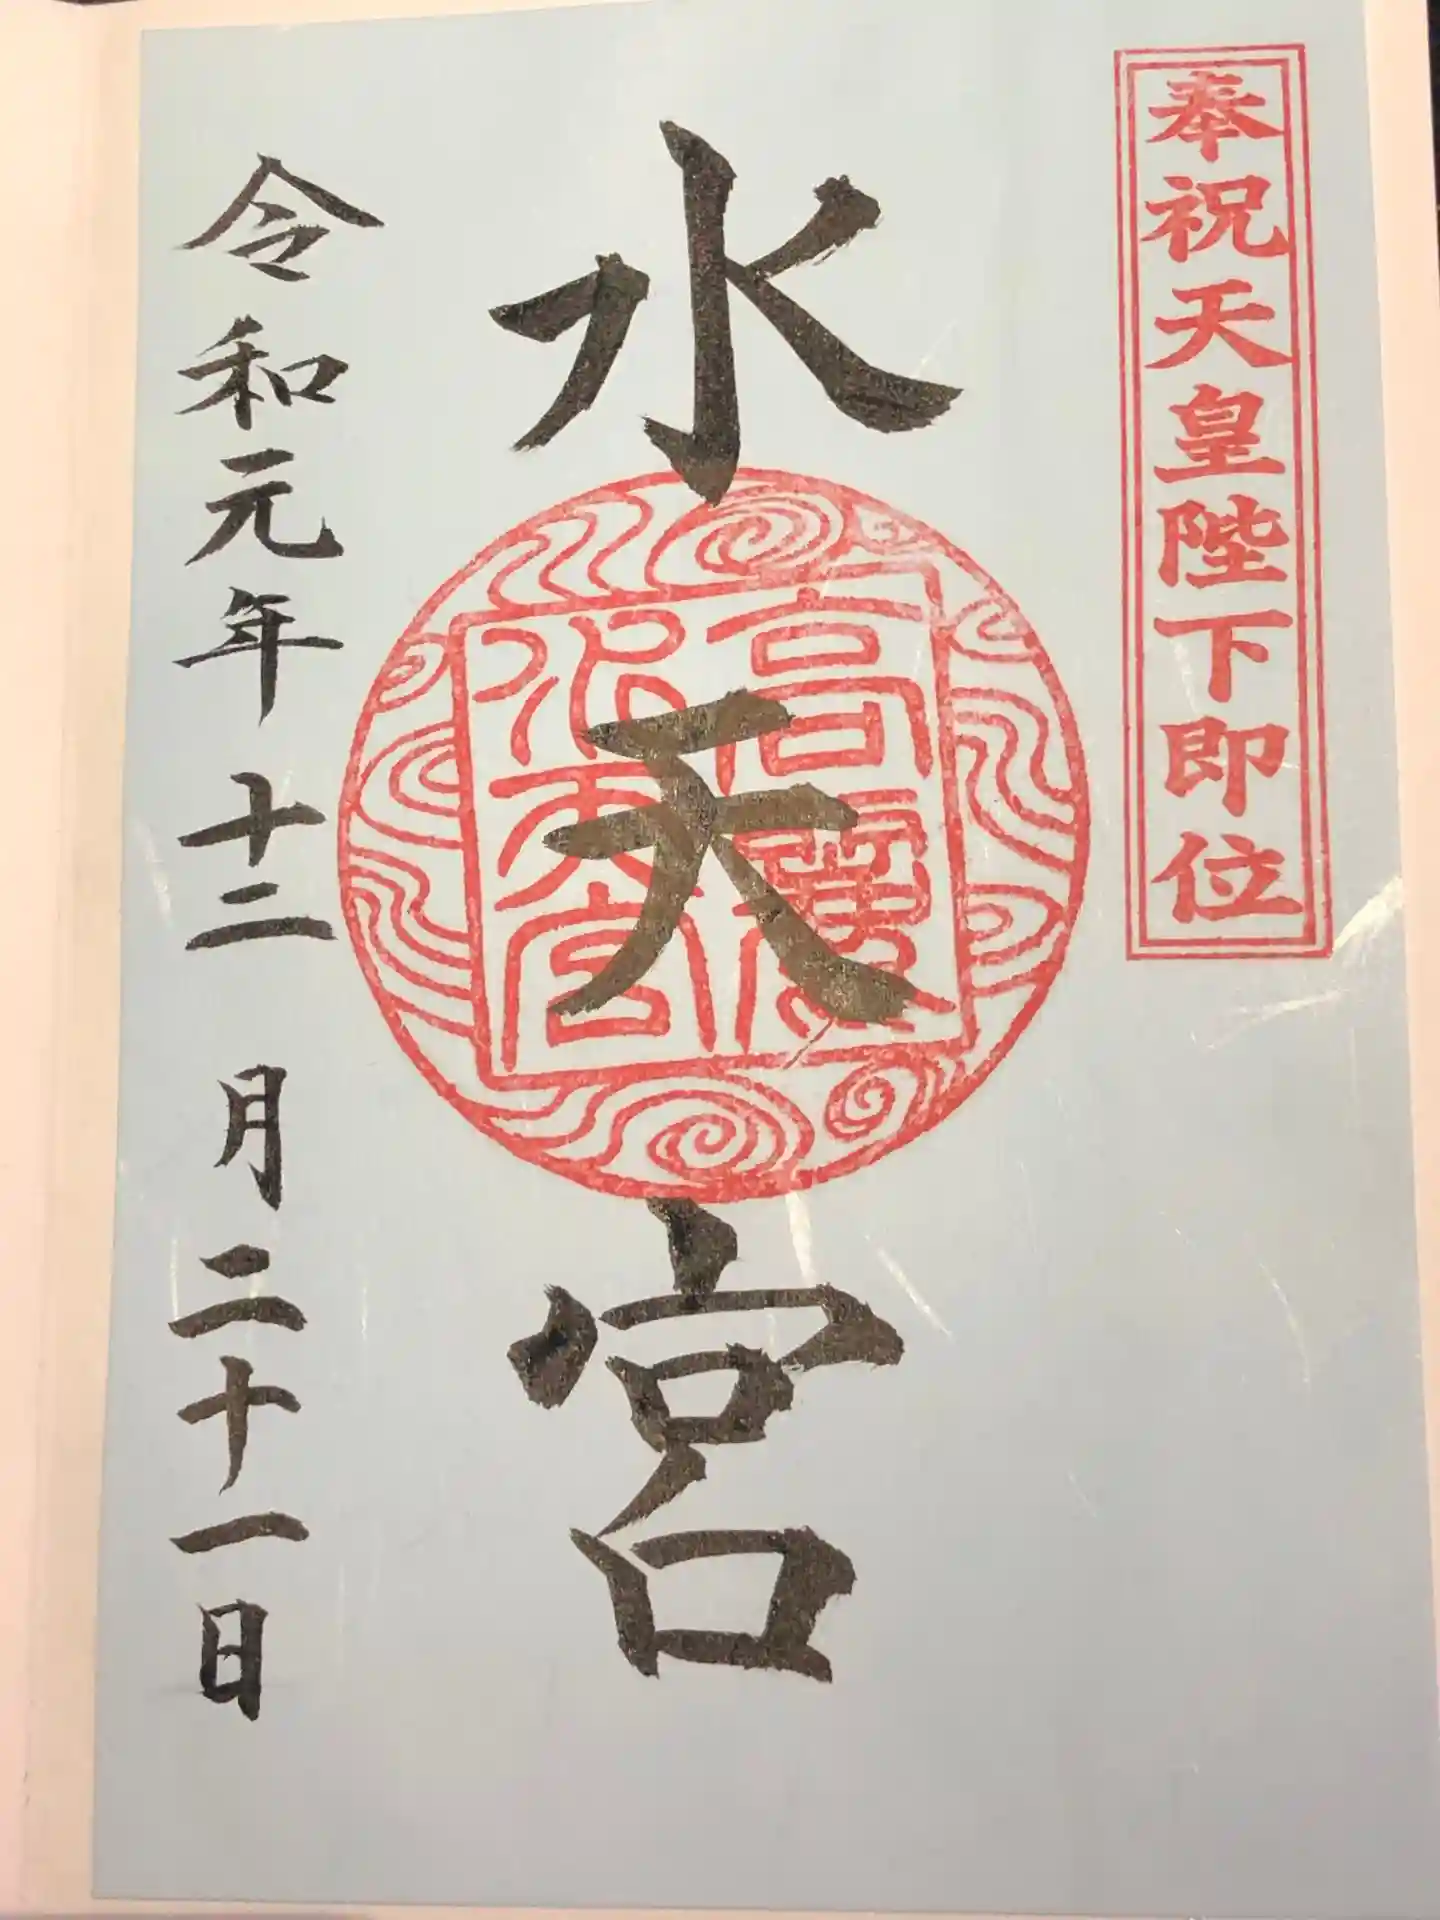 奉祝天皇陛下即位
水天宮
高輪
水天宮
令和元年十二月二十一日